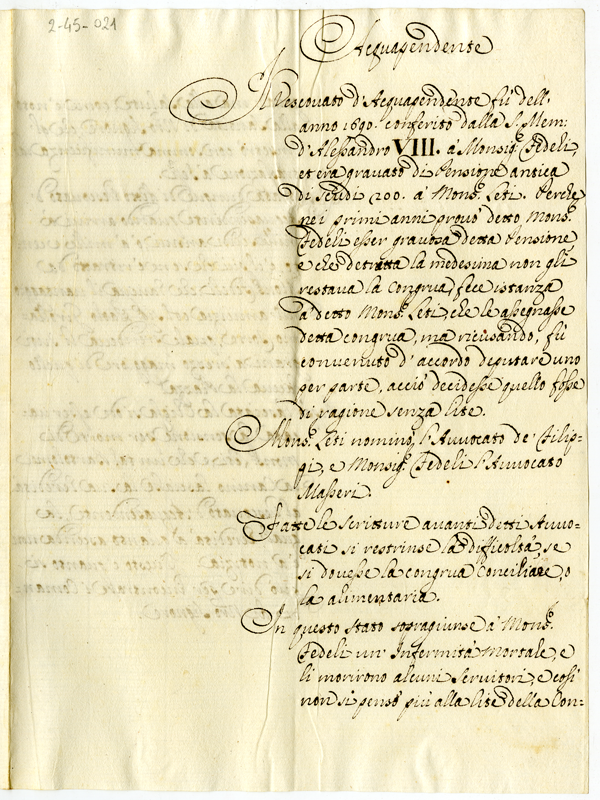 2-45-021
Acquapendente
Il Vescovato d'Acquapendente fù dell'
anno 1690. conferito dalla S. Mem:
d'Alessandro VIII. à Monsig.r Fedeli
et era gravato di Pensione antica
di Scudi 200. à Mons.r Leti. Perche
ne i primi anni provò detto Mons.r
Fedeli esser gravosa detta Pensione
e che detratta la medesima non gli
restava la Congrua, fece istanza
à detto Mons.r Leti, che le assegnasse
detta congrua, ma ricusando, fù
convenuto d'accordo deputare uno
per parte, acciò decidesse quello fosse
di ragione senza lite.
Mons.r Leti nominò l'Avvocato de' Filip=
pi, e Monsig.r Fedeli l'Avvocato
Masseri.
Fatte le scritture avanti detti Avvo=
cati si restrinse la difficoltà, se
si dovesse la congrua Conciliare, o
la alimentaria.
In questo stato sopragiunse à Mons.r
Fedeli un' Infermità Mortale, e
li morirono alcuni Servitori, e così
non si pensò più alla lite della Con=